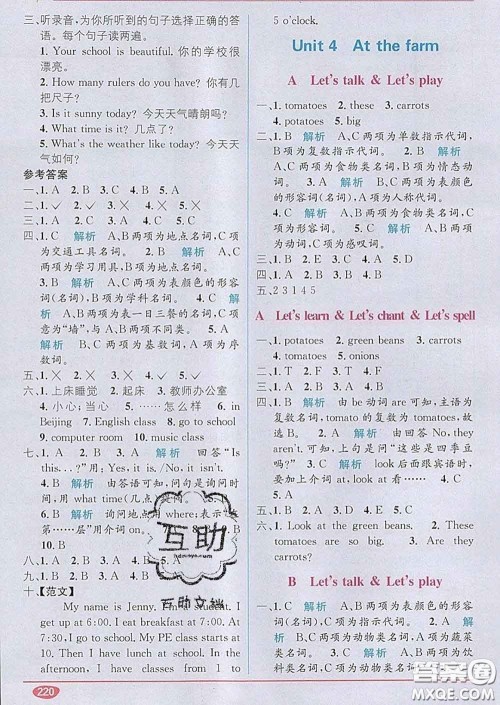 三、听录音,为你所听到的句子选择正确的答
语。每个句子读两遍。
1. Your school is beautiful. 你的学校
很漂亮。
2. How many rulers do you have? 你有几
把尺子?
3. Is it sunny today? 今天天气晴朗吗?
4. What time is it? 几点了?
5. What's the weather like today? 今天天
气如何?
参考答案
一、1. A 2. B 3. C 4. B 5. A
二、1. ✓ 2. ✓ 3. ✕ 4. ✕ 5. ✕
三、1. A 2. C 3. A 4. B 5. C
四、1. C 解析 A、B两项为地点名词,C项
为交通工具名词。 2. B 解析 A、C两
项为学习用具,B项为地点名词。
3. B 解析 A、C两项为表颜色的形容
词(名词),B项为学科名词。 4. C 解析
A、B两项为表一日三餐的名词,C项
意为“墙”,与A、B两项不同类。 5. A
解析 B、C两项为基数词,A项为序数
词。
五、1. B 2. A 3. B 4. A 5. A
六、1. 上床睡觉 2. 起床 3. 教师办公室
4. 小心;当心 5. ……怎么样 6. in
Beijing 7. English class 8. go to school
9. computer room 10. music class
七、1. B 2. A 3. A 解析 回答“Is
this...?”用;Yes, it is. /No, it isn't.
4. B 解析 由答语可知,问句是询问时
间,用what time(几点)
5. B 6. A 7. A where;表
8. A 9. B 解析 表示“在
第……层”用介词on。
10. B
八、1. A 2. B 3. A 4. B 5. B
九、1. B 2. A 3. B 4. A 5. B
十、【范文】
My name is Jenny. I'm a student. I
get up at 6:00. I eat breakfast at 7:00.
At 7:30, I go to school. My PE class starts
at 10:00. Then I have lunch at school. In
the afternoon, I have classes from 1 to
220
5 o'clock.
Unit 4 At the farm
A Let's talk & Let's play
一、1. tomatoes 2. these 3. carrots
4. potatoes 5. big
二、1. B 解析 A、C两项为单数指示代词,
B项为复数指示代词。 2. C 解析
A、B两项为食物类名词,C项为情态动
词。 3. A 解析 B、C两项为表颜色的
形容词(名词),A项为人称代词。
4. C 解析 A、B两项为食物类名词,C
项为动物类名词。 5. B 解析 A、C两
项为动词,B项为感叹词。
三、1. B 2. D 3. E 4. A 5. C
四、1. B 2. B 3. A 4. C 5. B
五、2 3 1 4 5
A Let's learn & Let's chant & Let's spell
一、1. potatoes 2. green beans 3. carrots
4. tomatoes 5. onions
二、1. T 2. F 3. T 4. T 5. F
三、1. B 2. A 3. A 4. A 5. B
四、1. B 解析 由be动词are可知,主语为
复数名词,tomato的复数为tomatoes,故
选B。 2. A 解析 由回答No, they
aren't.可知,上句为“这些是四季豆
吗?” 3. C 解析 look后面跟宾语时,
要加上介词at。 4. A 5. C
五、1. B 2. D 3. A 4. C
六、1. Look at the green beans. 2. These
tomatoes are so big. 3. These are
carrots!
B Let's talk & Let's play
一、1. C 解析 A、B两项为表颜色的形容
词(名词),C项为动物类名词。
2. A 解析 B、C两项为动物类名词,A项为蔬菜
类名词。 3. B 解析 A、C两项为饮
料类名词,B项为动物类名词。 4. C
互助
互助文档
答案圈
MXQE.COM